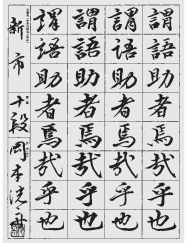 謂語助者焉哉乎也
謂語助者焉哉乎也
謂語助者焉哉乎也
謂語助者焉哉乎也
新市 十段 岡本